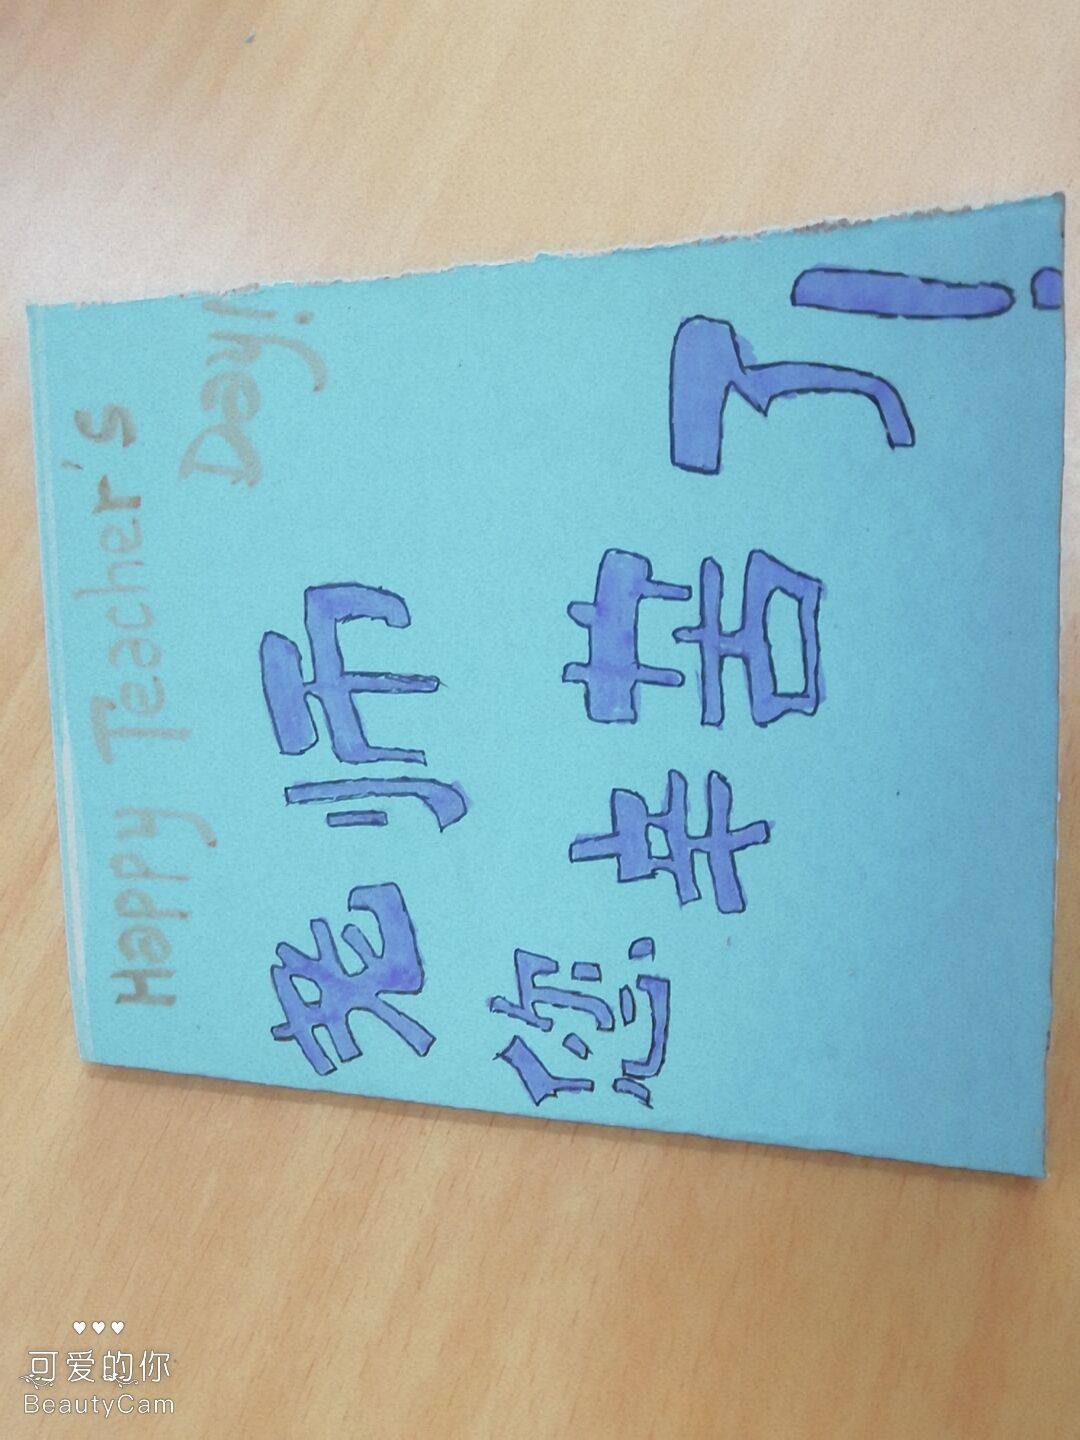 Happy Teacher's
Day!
老师
您辛苦了!
可爱的你
BeautyCam